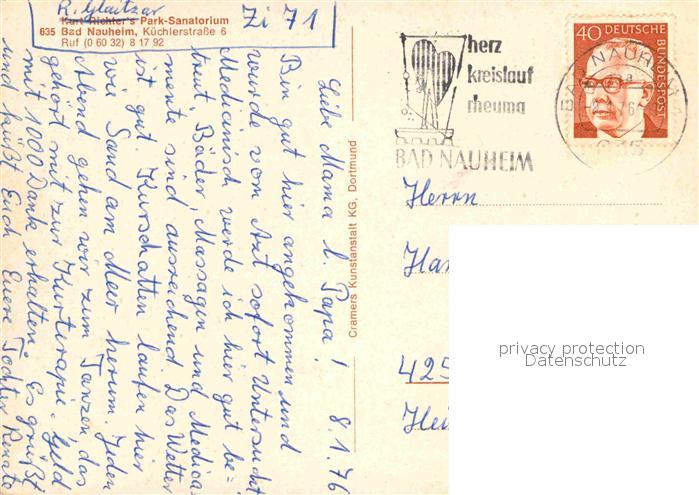 R. Glaitzar Zi 71
Kurt Richter's Park-Sanatorium
635 Bad Nauheim, Küchlerstraße 6
Ruf (0 60 32) 8 17 92
Liebe Mama l. Papa! 8.1.76
Bin gut hier angekommen und
wurde vom Arzt sofort untersucht
Medicinisch werde ich hier gut be-
treut, Bäder, Massagen und Medica-
mente sind ausreichend. Das Wetter
ist gut. Kurschatten laufen hier
wie Sand am Meer herum. Jeden
Abend gehen wir zum Tanzen, das
gehört mit zur Kurterapie. Geld
mit 1000 Dank erhalten. Es grüßt
und küßt Euch Eure Tochter Renate
Cramers Kunstanstalt KG, Dortmund
herz
kreislauf
rheuma
BAD NAUHEIM
40 DEUTSCHE BUNDESPOST
BAD NAUHEIM
Herrn
425
privacy protection
Datenschutz